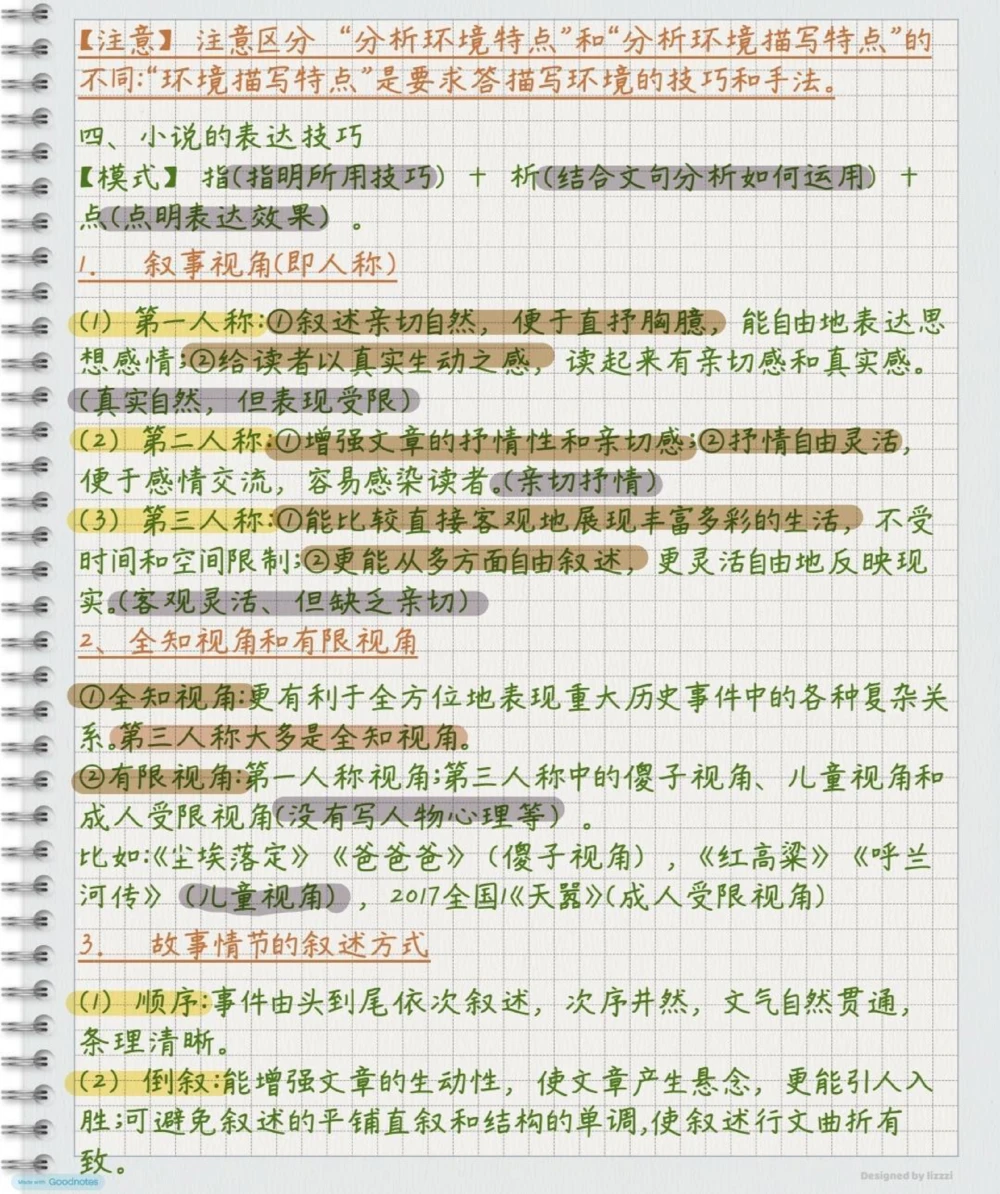 【注意】 注意区分 “分析环境特点”和“分析环境描写特点”的
不同:“环境描写特点”是要求答描写环境的技巧和手法。
四、小说的表达技巧
【模式】 指(指明所用技巧) + 析(结合文句分析如何运用) +
点(点明表达效果) 。
1. 叙事视角(即人称)
(1) 第一人称:①叙述亲切自然, 便于直抒胸臆, 能自由地表达思
想感情;②给读者以真实生动之感, 读起来有亲切感和真实感。
(真实自然, 但表现受限)
(2) 第二人称:①增强文章的抒情性和亲切感;②抒情自由灵活,
便于感情交流, 容易感染读者。(亲切抒情)
(3) 第三人称:①能比较直接客观地展现丰富多彩的生活, 不受
时间和空间限制;②更能从多方面自由叙述, 更灵活自由地反映现
实。(客观灵活、但缺乏亲切)
2、全知视角和有限视角
①全知视角:更有利于全方位地表现重大历史事件中的各种复杂关
系。第三人称大多是全知视角。
②有限视角:第一人称视角;第三人称中的傻子视角、儿童视角和
成人受限视角(没有写人物心理等) 。
比如:《尘埃落定》《爸爸爸》(傻子视角) ,《红高粱》《呼兰
河传》(儿童视角) , 2017全国1《天嚣》(成人受限视角)
3. 故事情节的叙述方式
(1) 顺序:事件由头到尾依次叙述, 次序井然, 文气自然贯通,
条理清晰。
(2) 倒叙:能增强文章的生动性, 使文章产生悬念, 更能引人入
胜;可避免叙述的平铺直叙和结构的单调,使叙述行文曲折有
致。
Made with Goodnotes
Designed by lizzzi